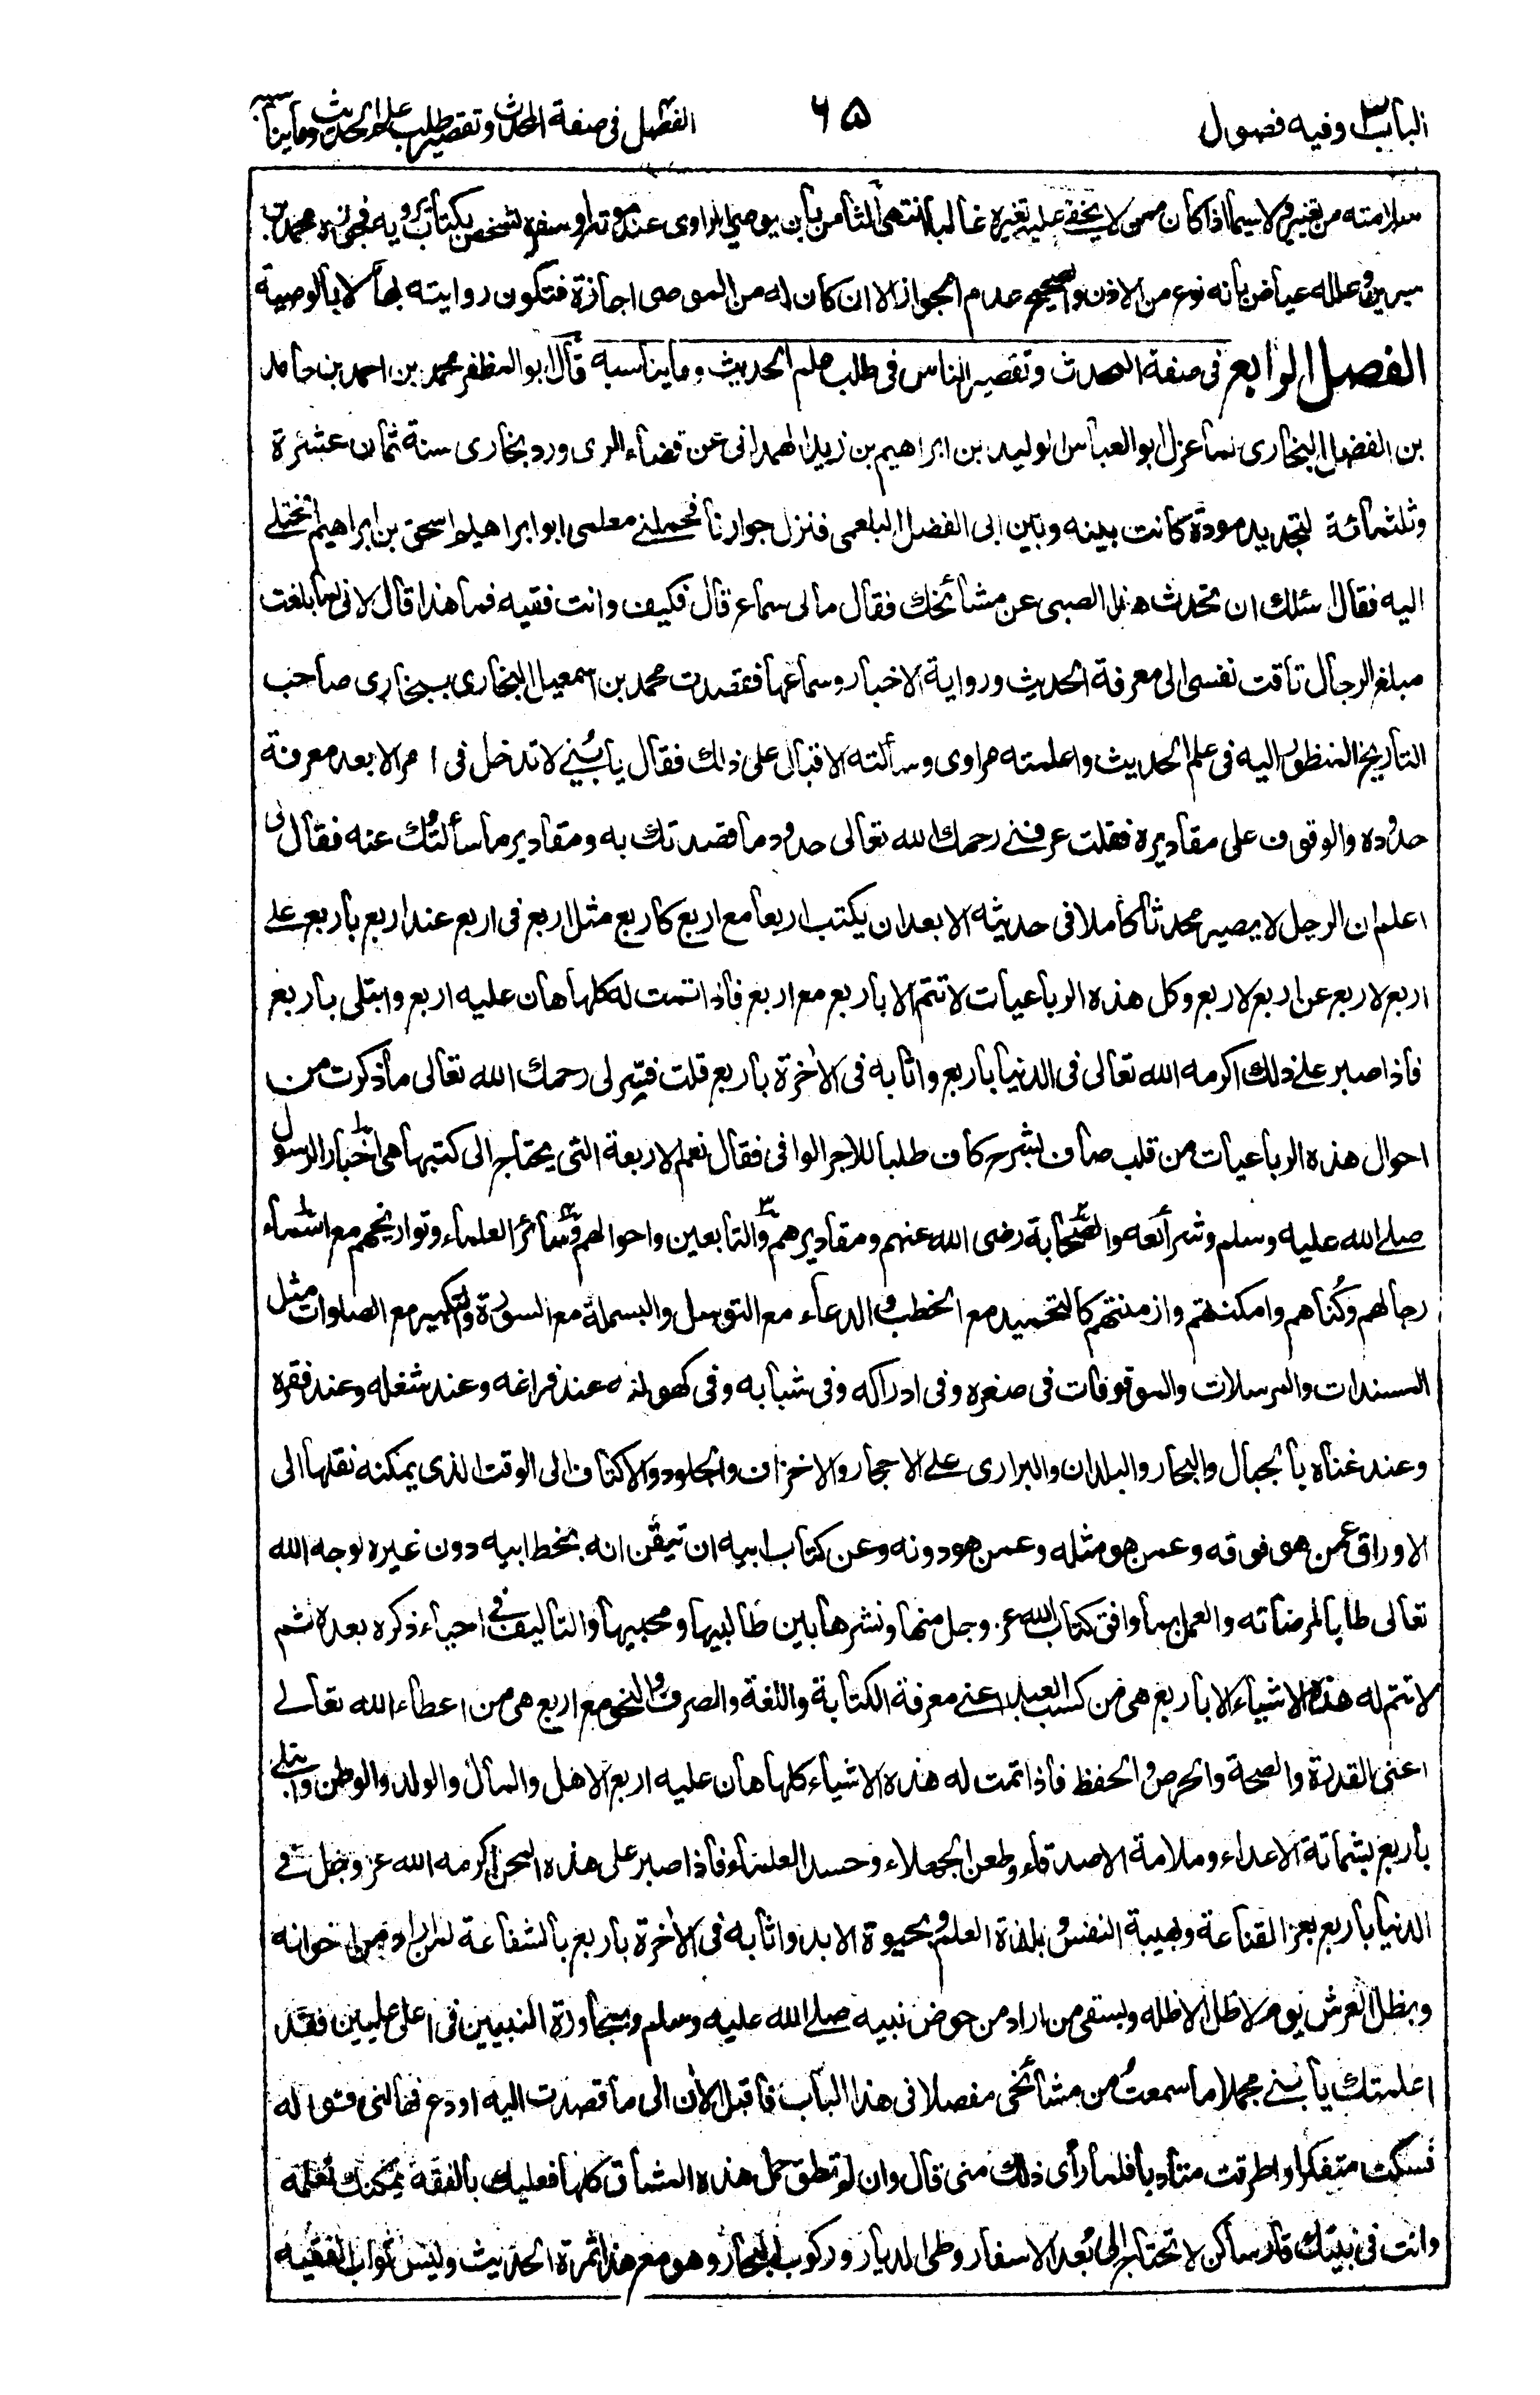 الباب٣ وفيه فصول
٦٥
الفصل فی صفة المحدث وتقصیر طلب علم الحدیث وما یناسبه
سلامته من تغییره لاسیما اذا کان ممن لا یخفے علیه تغیره غالبا انتهی الثامن بأن یوصی الراوی عند موته او سفره لشخص بکتاب یرویه فجوزه محمد بن
سیرین وعلله عیاض بأنه نوع من الاذن والصحیح عدم الجواز الا ان کان له من الموصی اجازة فتکون روایته بها لا بالوصیة
الفصل الرابع فی صفة المحدث وتقصیر الناس فی طلب علم الحدیث وما یناسبه قال ابو المظفر محمد بن احمد بن حامد
بن الفضل البخاری لما عزل ابو العباس الولید بن ابراهیم بن زید الهمدانی عن قضاء الری ورد بخاری سنة ثمان عشرة
وثلثمائة لتجدید مودة کانت بینه وبین ابی الفضل البلعمی فنزل جوارنا فحملنے معلمی ابو ابراهیم اسحق بن ابراهیم الختلے
الیه فقال سئلك ان تحدث هذا الصبی عن مشائخك فقال مالی سماع قال فکیف وانت فقیه فما هذا قال لانی لما بلغت
مبلغ الرجال تاقت نفسی الی معرفة الحدیث وروایة الاخبار وسماعها فقصدت محمد بن اسمعیل البخاری ببخاری صاحب
التاریخ المنظور الیه فی علم الحدیث واعلمته مرادی وسألته الاقبال علی ذلك فقال یا بُنَیَّ لا تدخل فی امر الا بعد معرفة
حدوده والوقوف علی مقادیره فقلت عرفنے رحمك الله تعالی حدود ما قصدتك به ومقادیر ما سألتُك عنه فقال لی
اعلم ان الرجل لا یصیر محدثا کاملا فی حدیثه الا بعد ان یکتب اربعا مع اربع کاربع مثل اربع فی اربع عند اربع باربع علے
اربع لاربع عن اربع لاربع وکل هذه الرباعیات لا تتم الا باربع مع اربع فاذا تمت له کلها هان علیه اربع وابتلی باربع
فاذا صبر علے ذلك اکرمه الله تعالی فی الدنیا باربع واثابه فی الآخرة باربع قلت فسّر لی رحمك الله تعالی ما ذکرت من
احوال هذه الرباعیات من قلب صاف بشرح کاف طلبا للاجر الوافی فقال نعم الاربعة التی یحتاج الی کتبها هی اخبار الرسول
صلے الله علیه وسلم وشرائعه والصحابة رضی الله عنهم ومقادیرهم والتابعین واحوالهم وسائر العلماء وتواریخهم مع اسماء
رجالهم وکُناهم وامکنتهم وازمنتهم کالتحمید مع الخطب والدعاء مع التوسل والبسملة مع السورة والتکبیر مع الصلوات مثل
المسندات والمرسلات والموقوفات فی صغره وفی ادراکه وفی شبابه وفی کهولته عند فراغه وعند شغله وعند فقره
وعند غناه بالجبال والبحار والبلدان والبراری علے الاحجار والاخزاف والجلود والاکتاف الی الوقت الذی یمکنه نقلها الی
الاوراق عمن هو فوقه وعمن هو مثله وعمن هو دونه وعن کتاب ابیه ان تیقّن انه بخط ابیه دون غیره لوجه الله
تعالی طالبا لمرضاته والعمل بما وافق کتاب الله عز وجل منها ونشرها بین طالبیها ومحبیها والتالیف فی احیاء ذکره بعده ثم
لا تتم له هذه الاشیاء الا باربع هی من کسب العبد اعنے معرفة الکتابة واللغة والصرف والنحو مع اربع هی من اعطاء الله تعالے
اعنی القدرة والصحة والحرص والحفظ فاذا تمت له هذه الاشیاء کلها هان علیه اربع الاهل والمال والولد والوطن وابتلے
باربع بشماتة الاعداء وملامة الاصدقاء وطعن الجهلاء وحسد العلماء فاذا صبر علی هذه المحن اکرمه الله عز وجل فے
الدنیا باربع بعز القناعة وبهیبة النفس وبلذة العلم وبحیوة الابد واثابه فی الآخرة باربع بالشفاعة لمن اراد من اخوانه
وبظل العرش یوم لا ظل الا ظله وبسقی من اراد من حوض نبیه صلے الله علیه وسلم وبمجاورة النبیین فی اعلی علیین فقد
اعلمتك یا بُنَیَّ مجملا ما سمعتُ من مشائخی مفصلا فی هذا الباب فاقبل الآن الی ما قصدت الیه او دع فهالنی قوله
فسکت متفکرا واطرقت متأدبا فلما رأی ذلك منی قال وان لم تطق حمل هذه المشاق کلها فعلیك بالفقه یمکنك تعلمه
وانت فی بیتك قار ساکن لا تحتاج الی بُعد الاسفار وطی الدیار ورکوب البحار وهو مع هذا ثمرة الحدیث ولیس ثواب الفقیه